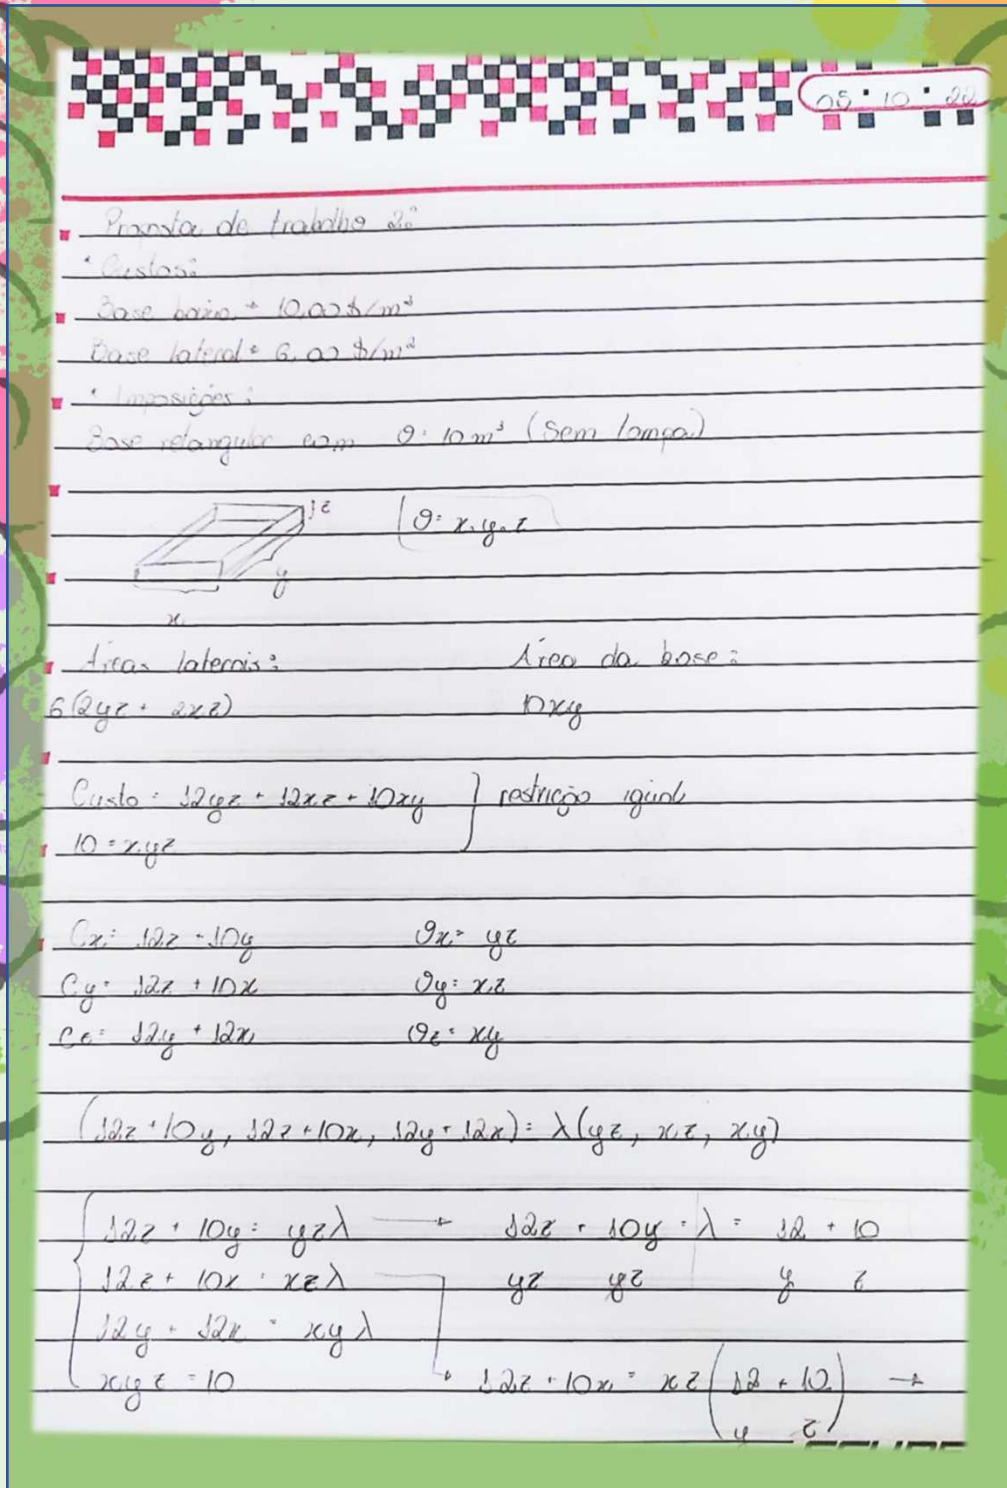 05 · 10 · 22
Proposta de trabalho 2:
• Custos:
Base baixa = 10,00 $/m²
Base lateral = 6,00 $/m²
• Imposições:
Base retangular com V = 10 m³ (Sem tampa)
z
V = x.y.z
y
x
Áreas laterais: Área da base:
6(2yz + 2xz) 10xy
Custo = 12yz + 12xz + 10xy } restrição igual
10 = x.yz
Cx = 12z + 10y Vx = yz
Cy = 12z + 10x Vy = xz
Cz = 12y + 12x Vz = xy
(12z + 10y, 12z + 10x, 12y + 12x) = λ(yz, xz, xy)
12z + 10y = yzλ → 12z + 10y = λ = 12 + 10
12z + 10x = xzλ yz yz y z
12y + 12x = xyλ
xyz = 10 → 12z + 10x = xz(12 + 10) →
y z